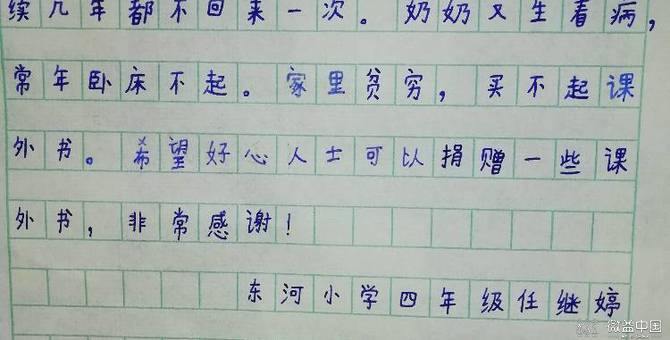 续几年都不回来一次。奶奶又生着病，
常年卧床不起。家里贫穷，买不起课
外书。希望好心人士可以捐赠一些课
外书，非常感谢！
东河小学四年级任继婷
微益中国